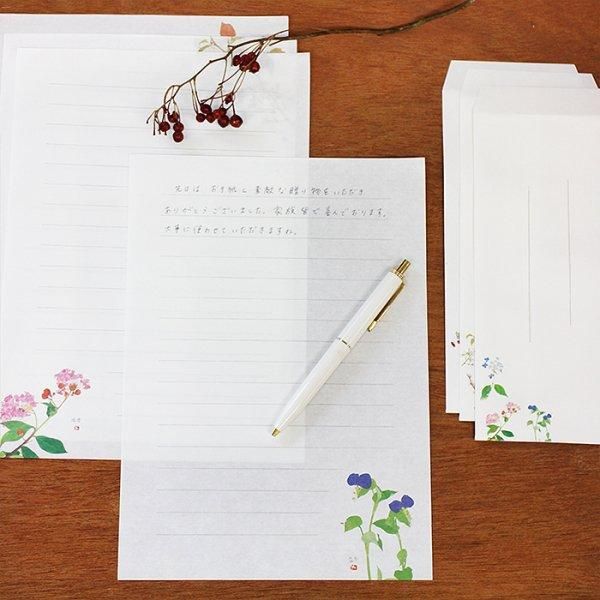 先日は、お手紙と素敵な贈り物をいただき
ありがとうございました。家族皆で喜んでおります。
大事に使わせていただきますね。